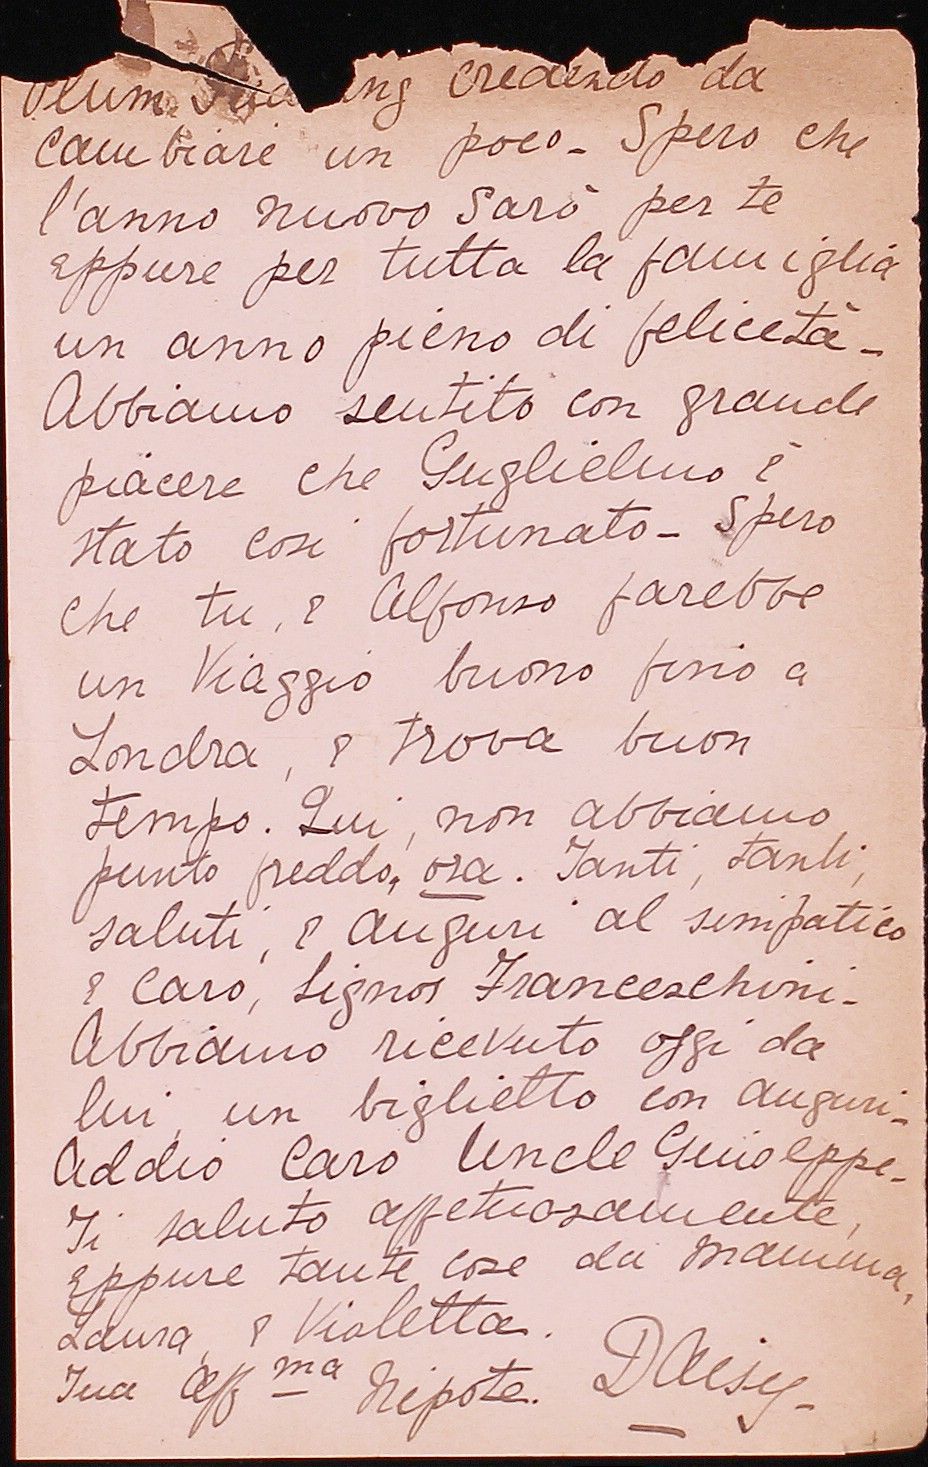 Plum Pudding credendo da
Cambiare un poco - Spero che
l'anno nuovo Sarà per te
eppure per tutta la famiglia
un anno pieno di felicetà -
Abbiamo sentito con grande
piacere che Guglielmo è
stato cosi fortunato - Spero
che tu, e Alfonso farebbe
un Viaggio buono fino a
Londra, e trova buon
tempo. Qui, non abbiamo
punto freddo, ora. Tanti, tanti,
saluti, e auguri al simpatico
e caro, Signor Franceschini -
Abbiamo ricevuto oggi da
lui, un biglietto con auguri -
Addio Caro Uncle Guiseppe -
Ti saluto affetuosamente,
eppure tante cose da Mamma,
Laura, e Violetta.
Tua aff ma Nipote. Daisy -